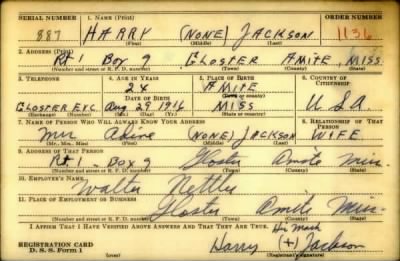 SERIAL NUMBER 1. NAME (Print) ORDER NUMBER
887 HARRY (NONE) JACKSON 1136
(First) (Middle) (Last)
2. ADDRESS (Print)
Rt 1 Box 9 GLOSTER AMITE MISS.
(Number and street or R. F. D. number) (Town) (County) (State)
3. TELEPHONE 4. AGE IN YEARS 5. PLACE OF BIRTH 6. COUNTRY OF CITIZENSHIP
24 AMITE
(Town or county)
GLOSTER EXC. Aug 29 1916 MISS U S A
(Exchange) (Number) (Mo.) (Day) (Yr.) (State or country)
7. NAME OF PERSON WHO WILL ALWAYS KNOW YOUR ADDRESS 8. RELATIONSHIP OF THAT PERSON
Mrs (NONE) JACKSON WIFE
(Mr., Mrs., Miss) (First) (Middle) (Last)
9. ADDRESS OF THAT PERSON
Rt 1 - Box 9 Gloster Amite Miss.
(Number and street or R. F. D. number) (Town) (County) (State)
10. EMPLOYER'S NAME
Walter Nettles
11. PLACE OF EMPLOYMENT OR BUSINESS
Gloster Amite Miss.
(Number and street or R. F. D. number) (Town) (County) (State)
I AFFIRM THAT I HAVE VERIFIED ABOVE ANSWERS AND THAT THEY ARE TRUE. His Mark
REGISTRATION CARD Harry (+) Jackson
D. S. S. Form 1